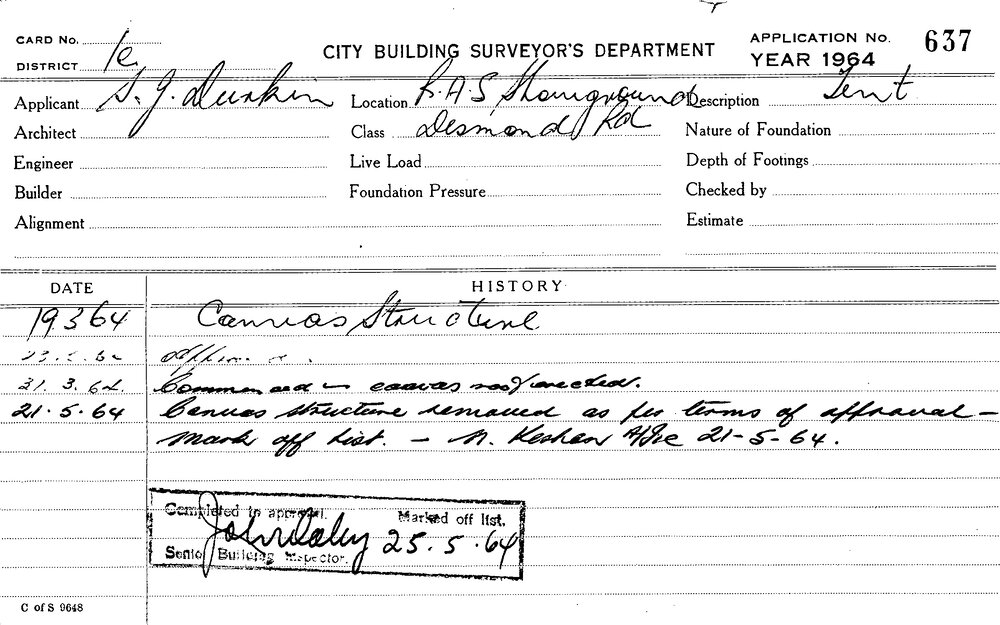 CARD No. 1e
DISTRICT
CITY BUILDING SURVEYOR'S DEPARTMENT
APPLICATION No. 637
YEAR 1964
Applicant S. J. Durkin
Location R.A.S Showground
Description Tent
Architect
Class Desmond Rd
Nature of Foundation
Engineer
Live Load
Depth of Footings
Builder
Foundation Pressure
Checked by
Alignment
Estimate
DATE HISTORY
19364 Canvas Structure
31.3.64. Commenced - canvas roof erected.
21.5.64 Canvas structure removed as per terms of approval -
mark off list. - N. 21-5-64.
Completed to approval. Marked off list.
John 25.5.64
Senior Building Inspector.
C of S 9648